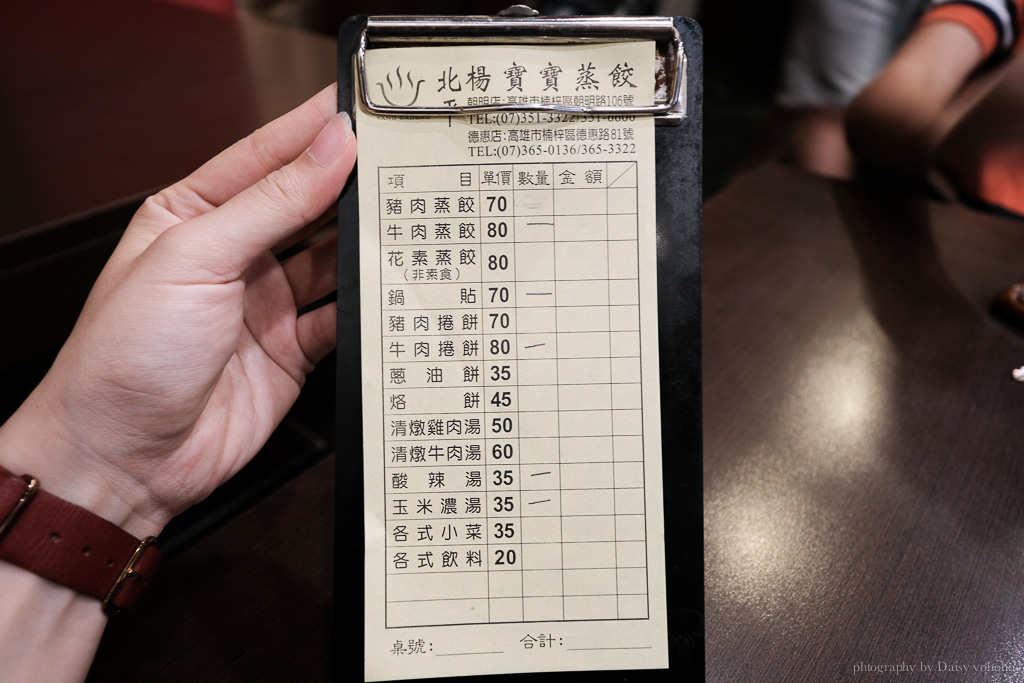 北楊寶寶蒸餃
YANG-BAOBAO
朝明店:高雄市楠梓區朝明路106號
TEL:(07)351-3322/351-6600
德惠店:高雄市楠梓區德惠路81號
TEL:(07)365-0136/365-3322
項目 單價 數量 金額
豬肉蒸餃 70
牛肉蒸餃 80 一
花素蒸餃 80
(非素食)
鍋貼 70 一
豬肉捲餅 70
牛肉捲餅 80 一
蔥油餅 35
烙餅 45
清燉雞肉湯 50
清燉牛肉湯 60
酸辣湯 35 一
玉米濃湯 35 一
各式小菜 35
各式飲料 20
桌號: 合計:
phtography by Daisy yohoho